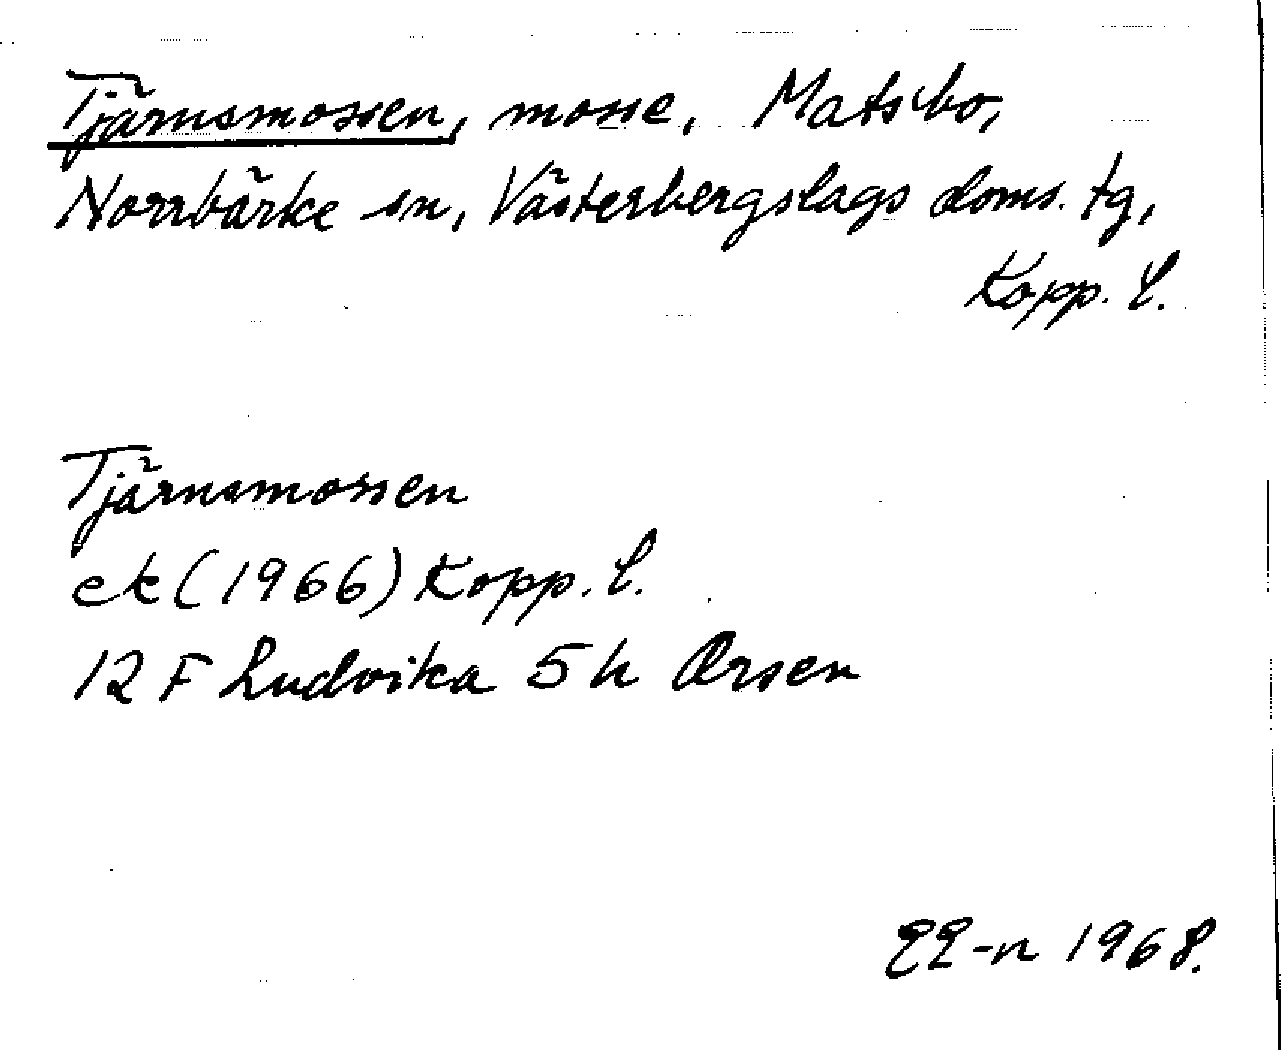 Tjärnsmossen, mosse, Matsbo,
Norrbärke sn, Västerbergslags doms. tg,
Kopp. l.
Tjärnsmossen
ek (1966) Kopp. l.
12 F Ludvika 5 h Orsen
EE-n 1968.